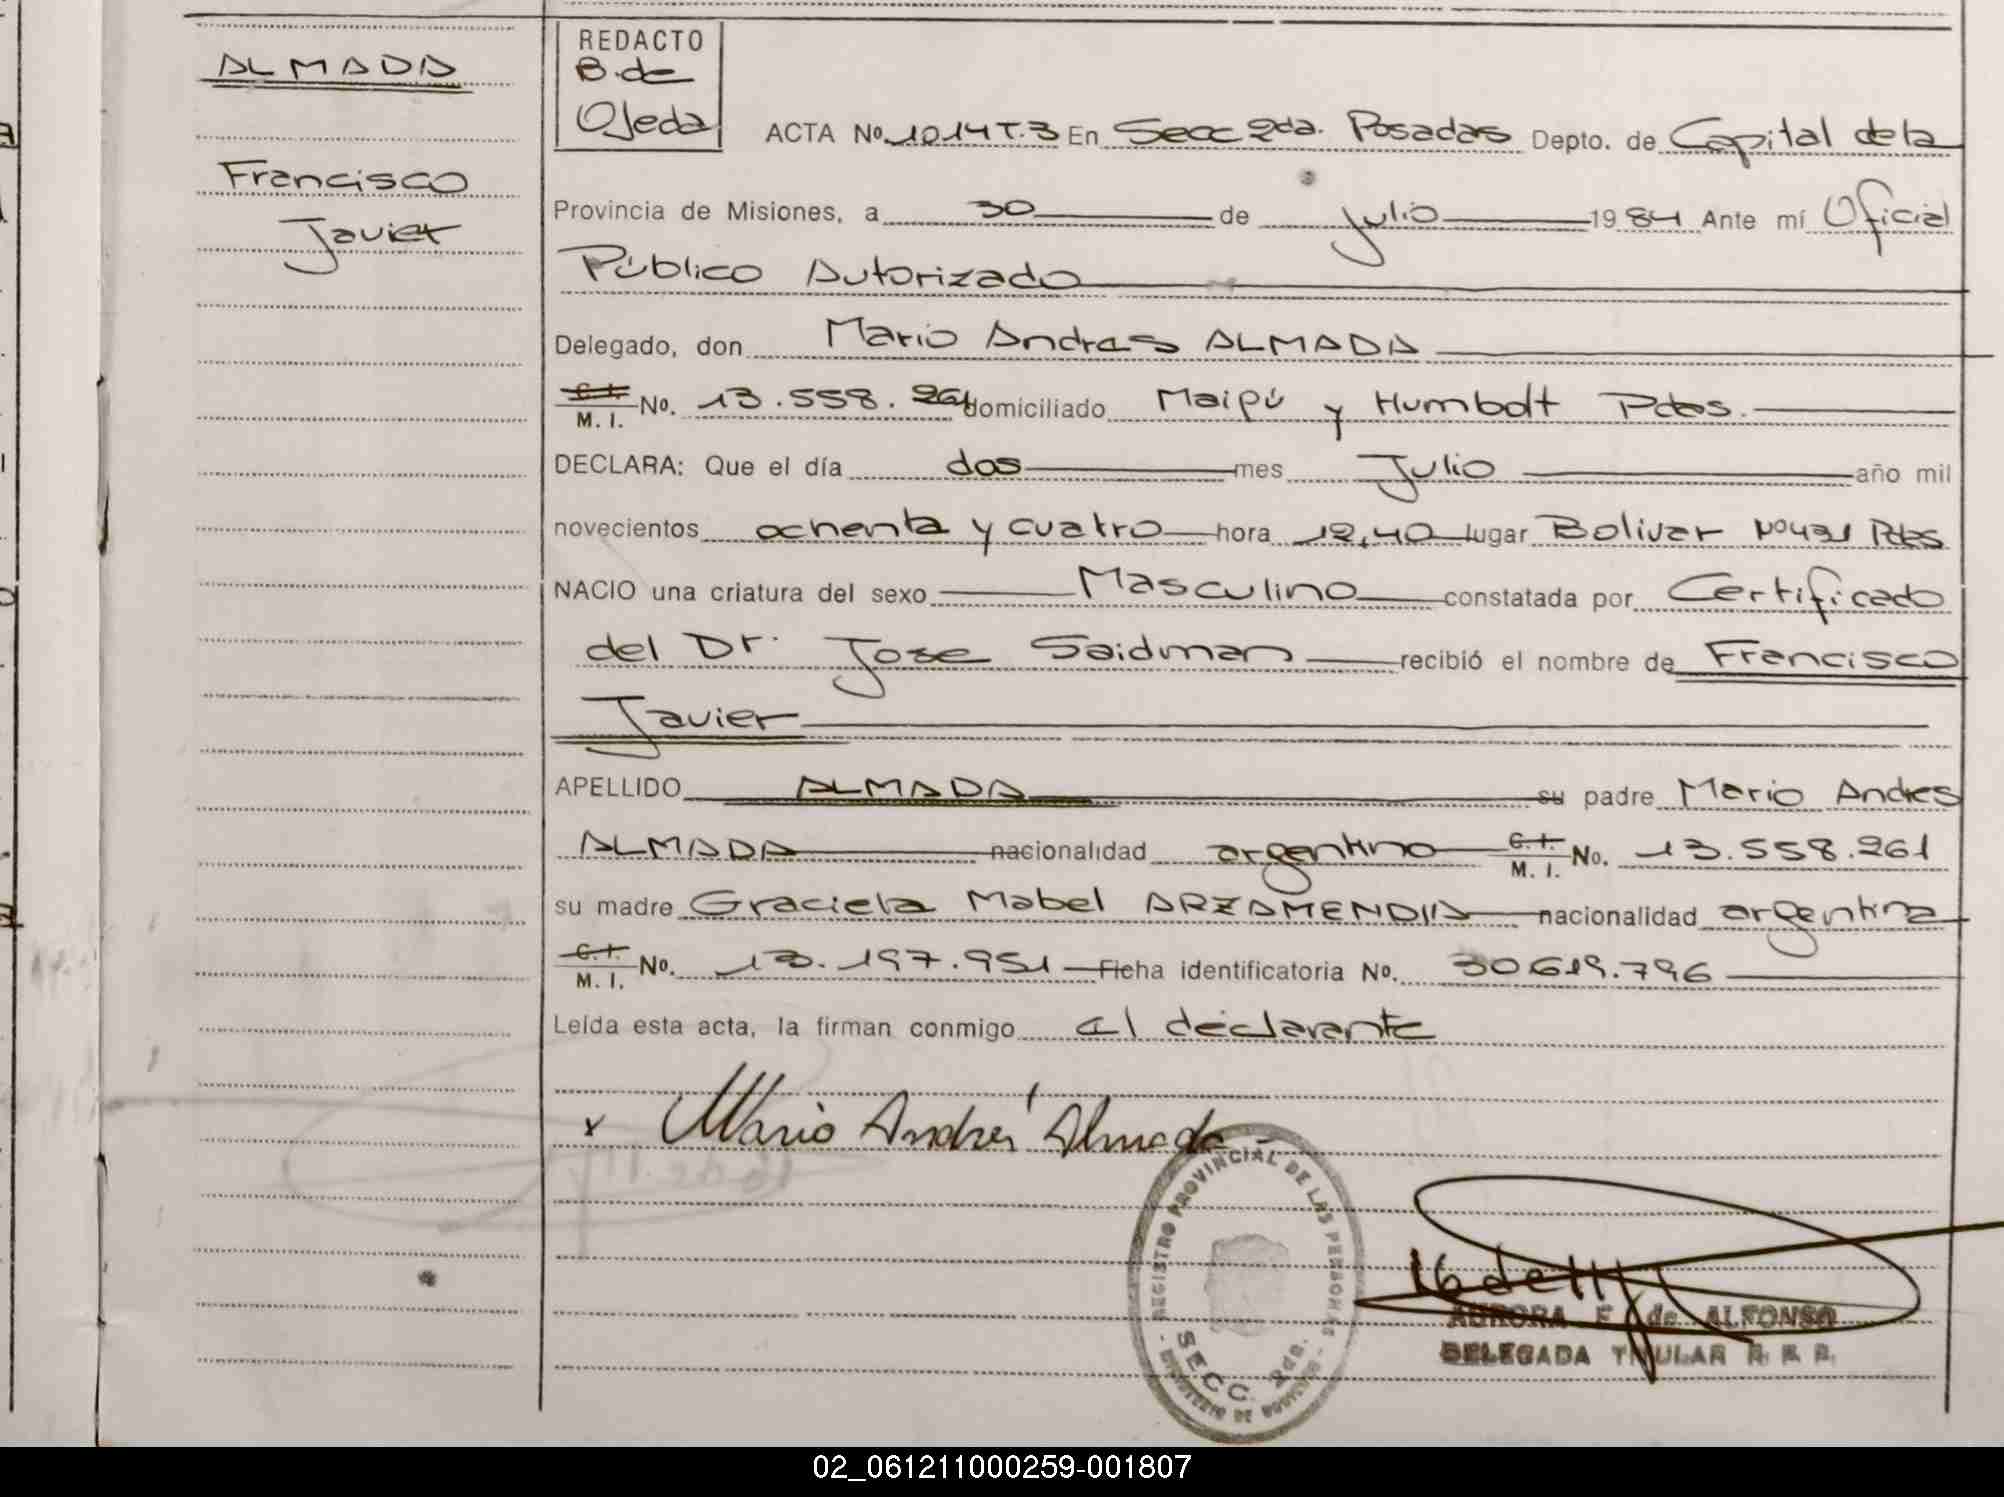 ALMADA
Francisco
Javier
REDACTO
B. de
Ojeda
ACTA No. 1014 T.3 En Secc 2da. Posadas Depto. de Capital de la
Provincia de Misiones, a 30 de julio 1984 Ante mí Oficial
Público Autorizado
Delegado, don Mario Andres ALMADA
C. I.
M. I. No. 13.558.261 domiciliado Maipú y Humbolt Pdas.
DECLARA: Que el día dos mes Julio año mil
novecientos ochenta y cuatro hora 12,40 lugar Bolivar Nº 431 Pdas
NACIO una criatura del sexo Masculino constatada por Certificado
del Dr. Jose Saidman recibió el nombre de Francisco
Javier
APELLIDO ALMADA su padre Mario Andres
ALMADA nacionalidad argentino C. I. M. I. No. 13.558.261
su madre Graciela Mabel ARZAMENDIA nacionalidad argentina
C. I.
M. I. No. 13.197.951 Ficha identificatoria No. 30.619.796
Leída esta acta, la firman conmigo el declarante
x Mario Andrés Almada
REGISTRO PROVINCIAL DE LAS PERSONAS
SECC. 2da.
MINISTERIO DE GOBIERNO
AURORA F. de ALFONSO
DELEGADA TITULAR R. P. P.
02_061211000259-001807